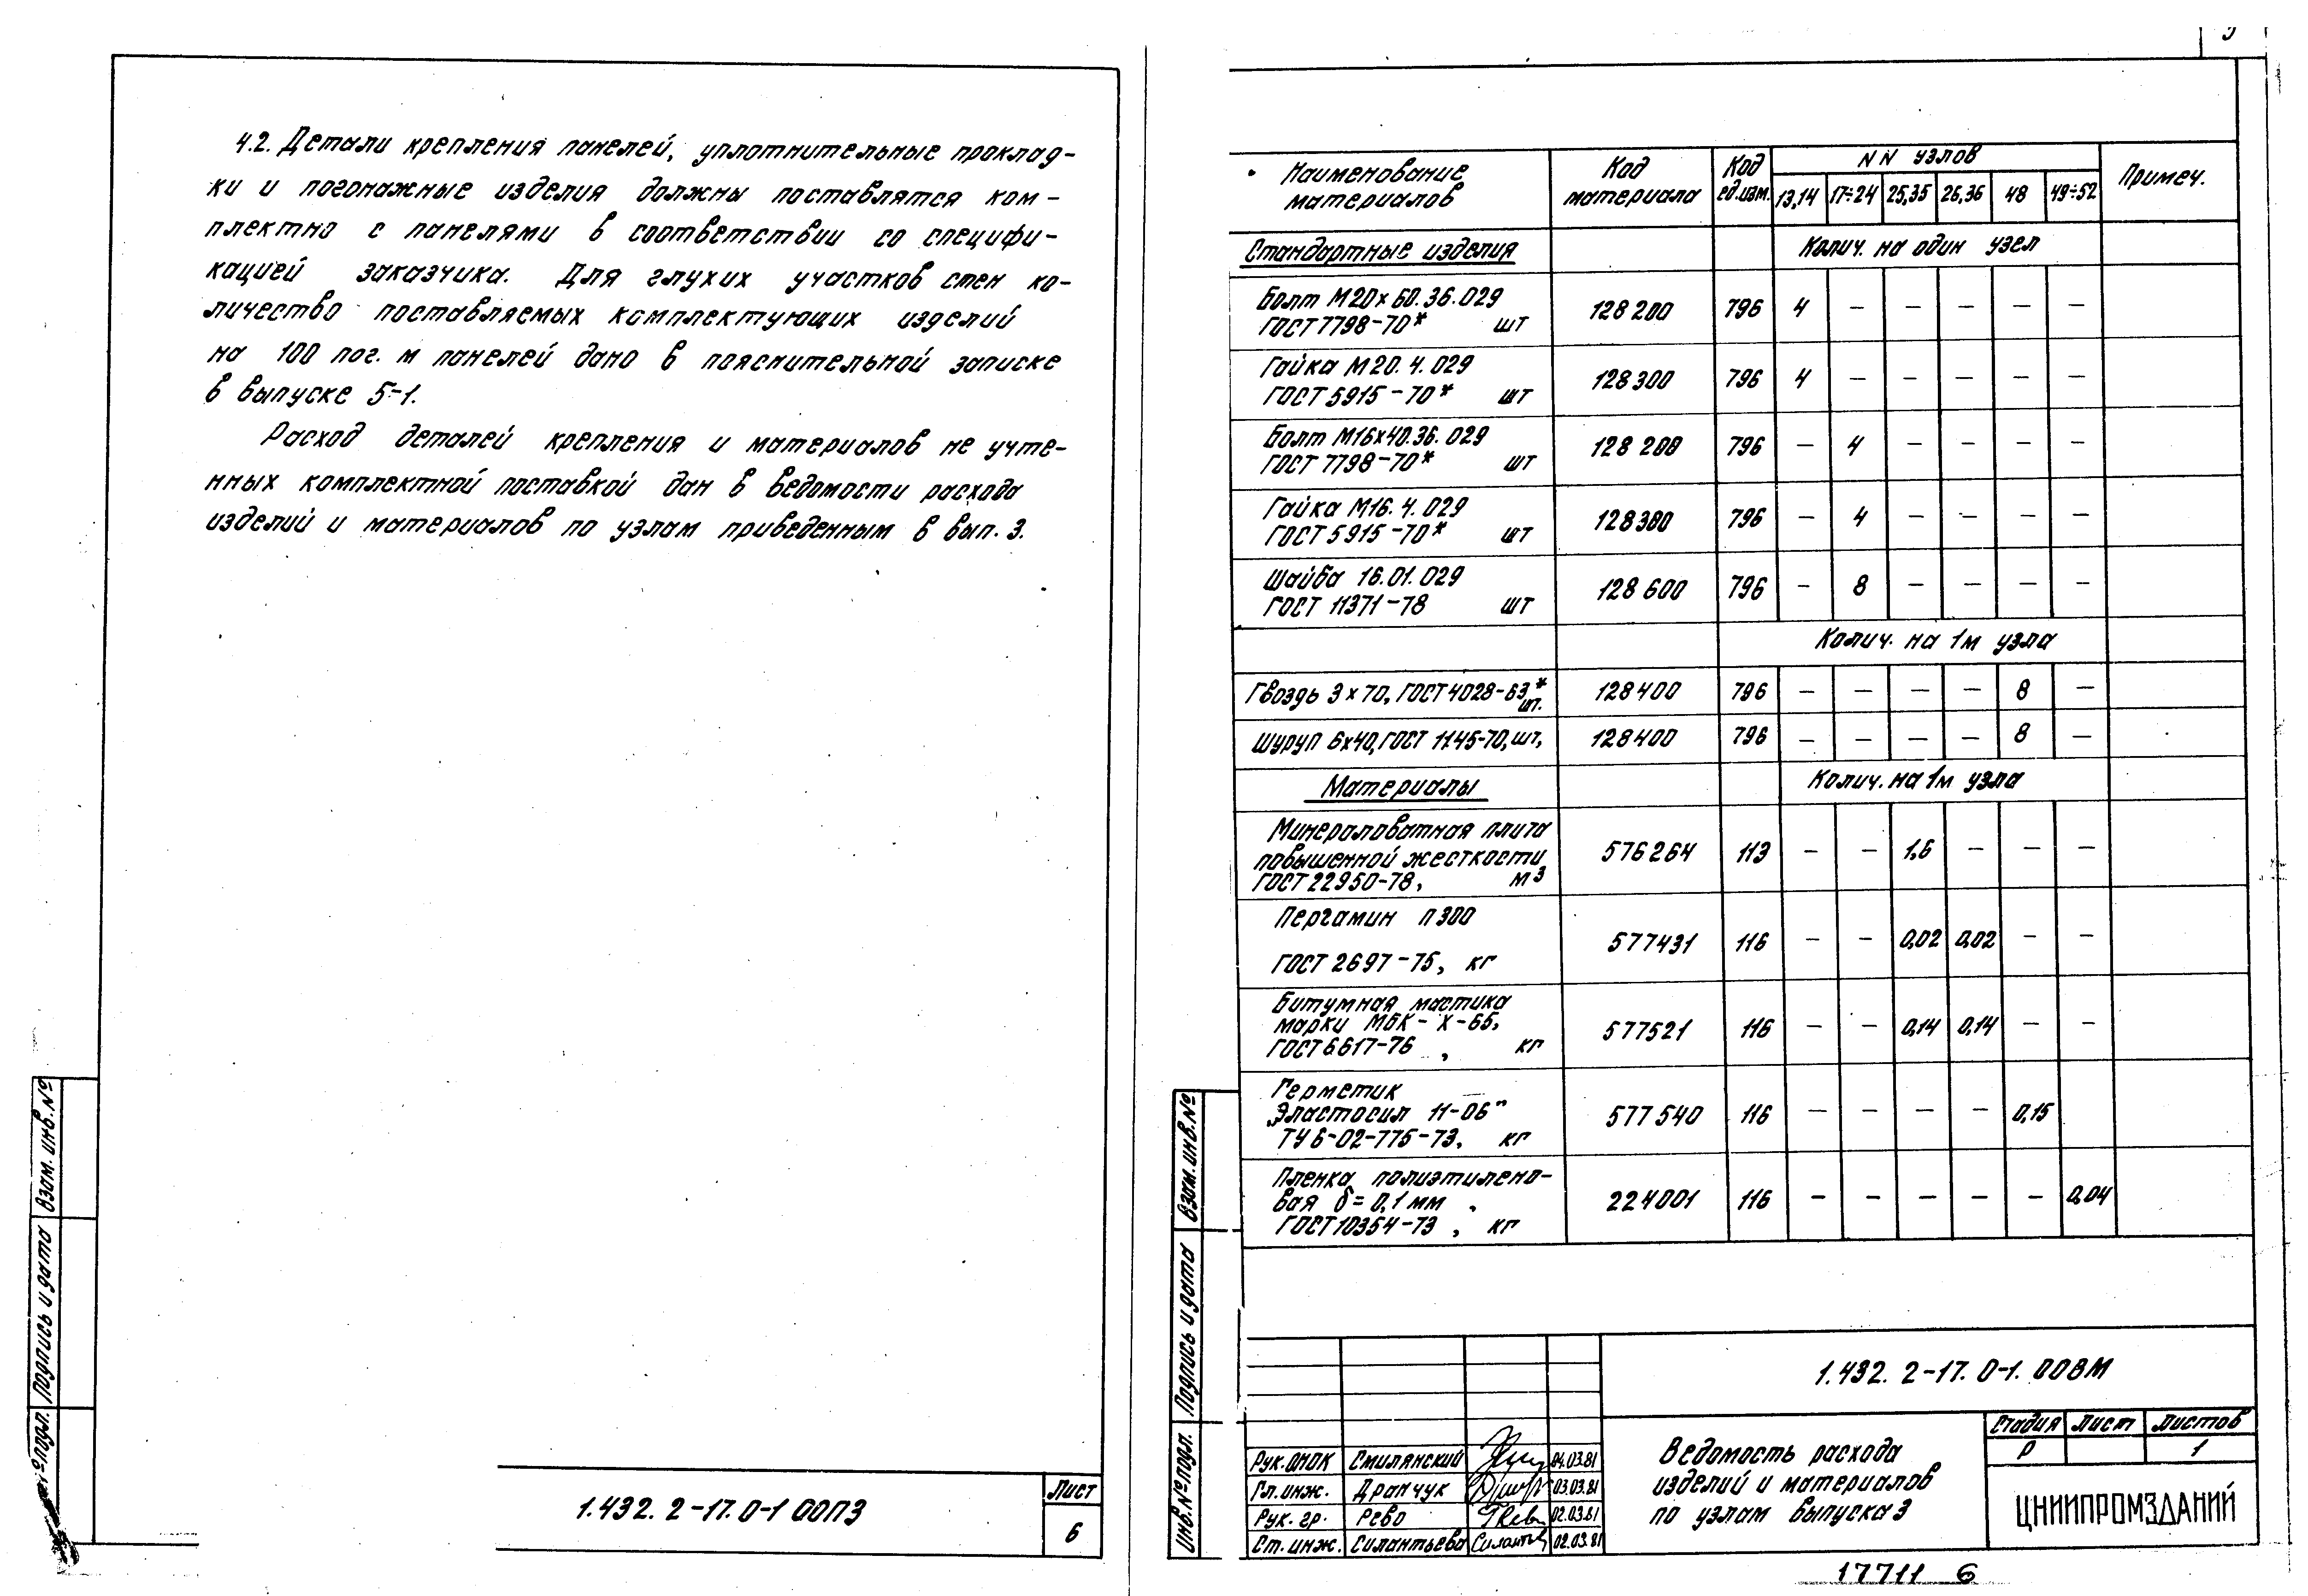 4.2. Детали крепления панелей, уплотнительные проклад-
ки и погонажные изделия должны поставлятся ком-
плектно с панелями в соответствии со специфи-
кацией заказчика. Для глухих участков стен ко-
личество поставляемых комплектующих изделий
на 100 пог. м панелей дано в пояснительной записке
в выпуске 5-1.
Расход деталей крепления и материалов не учте-
нных комплектной поставкой дан в ведомости расхода
изделий и материалов по узлам приведенным в вып. 3.
Взам. инв. №
Подпись и дата
№подл.
1.432. 2-17. 0-1 00ПЗ
Лист
6
Наименование материалов | Код материала | Код ед.изм. | NN узлов | Примеч.
13,14 | 17÷24 | 25,35 | 26,36 | 48 | 49÷52
Стандартные изделия | Колич. на один узел
Болт М20х60.36.029
ГОСТ 7798-70* шт | 128 200 | 796 | 4 | — | — | — | — | —
Гайка М20.4.029
ГОСТ 5915-70* шт | 128300 | 796 | 4 | — | — | — | — | —
Болт М16х40.36.029
ГОСТ 7798-70* шт | 128 200 | 796 | — | 4 | — | — | — | —
Гайка М16.4.029
ГОСТ 5915-70* шт | 128300 | 796 | — | 4 | — | — | — | —
Шайба 16.01.029
ГОСТ 11371-78 шт | 128 600 | 796 | — | 8 | — | — | — | —
Колич. на 1м узла
Гвоздь 3х70, ГОСТ 4028-63* шт. | 128400 | 796 | — | — | — | — | 8 | —
Шуруп 6х40, ГОСТ 1145-70, шт, | 128400 | 796 | — | — | — | — | 8 | —
Материалы | Колич. на 1м узла
Минераловатная плита
повышенной жесткости
ГОСТ 22950-78, м3 | 576264 | 113 | — | — | 1,6 | — | — | —
Пергамин П300
ГОСТ 2697-75, кг | 577431 | 116 | — | — | 0,02 | 0,02 | — | —
Битумная мастика
марки МБК-Х-65,
ГОСТ 6617-76, кг | 577521 | 116 | — | — | 0,14 | 0,14 | — | —
Герметик
„Эластосил 11-06"
ТУ 6-02-775-73, кг | 577 540 | 116 | — | — | — | — | 0,15
Пленка полиэтилено-
вая δ=0,1мм
ГОСТ 10354-73, кг | 224001 | 116 | — | — | — | — | — | 0,04
Взам. инв. №
Подпись и дата
Инв. № подл.
1.432. 2-17. 0-1. 00ВМ
Рук.ОМОК Смилянский 04.03.81
Гл.инж. Дранчук 03.03.81
Рук. гр. Рево 02.03.81
Ст. инж. Силантьева 02.03.81
Ведомость расхода
изделий и материалов
по узлам выпуска 3
Стадия Лист Листов
Р 1
ЦНИИПРОМЗДАНИЙ
17711 6